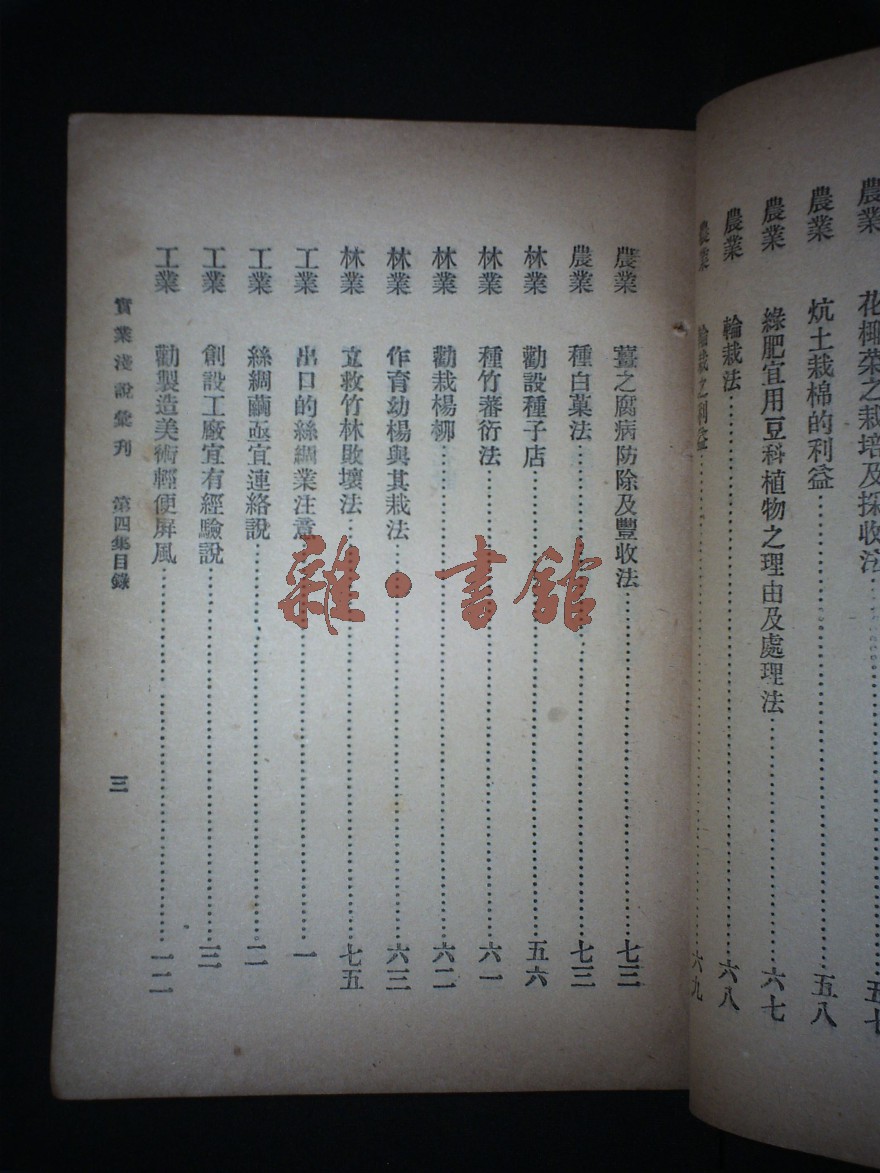 農業　花椰菜之栽培及採收法……五七
農業　炕土栽棉的利益……五八
農業　綠肥宜用豆科植物之理由及處理法……六七
農業　輪栽法……六八
農業　輪栽之利益……六九
農業　薑之腐病防除及豐收法……七三
農業　種白菓法……七三
林業　勸設種子店……五六
林業　種竹蕃衍法……六一
林業　勸栽楊柳……六二
林業　作育幼楊與其栽法……六三
林業　立救竹林敗壞法……七五
工業　出口的絲綢業注意……一
工業　絲綢繭亟宜連絡說……二
工業　創設工廠宜有經驗說……三
工業　勸製造美術輕便屏風……一二
實業淺說彙刊　第四集目錄　三
雜·書館